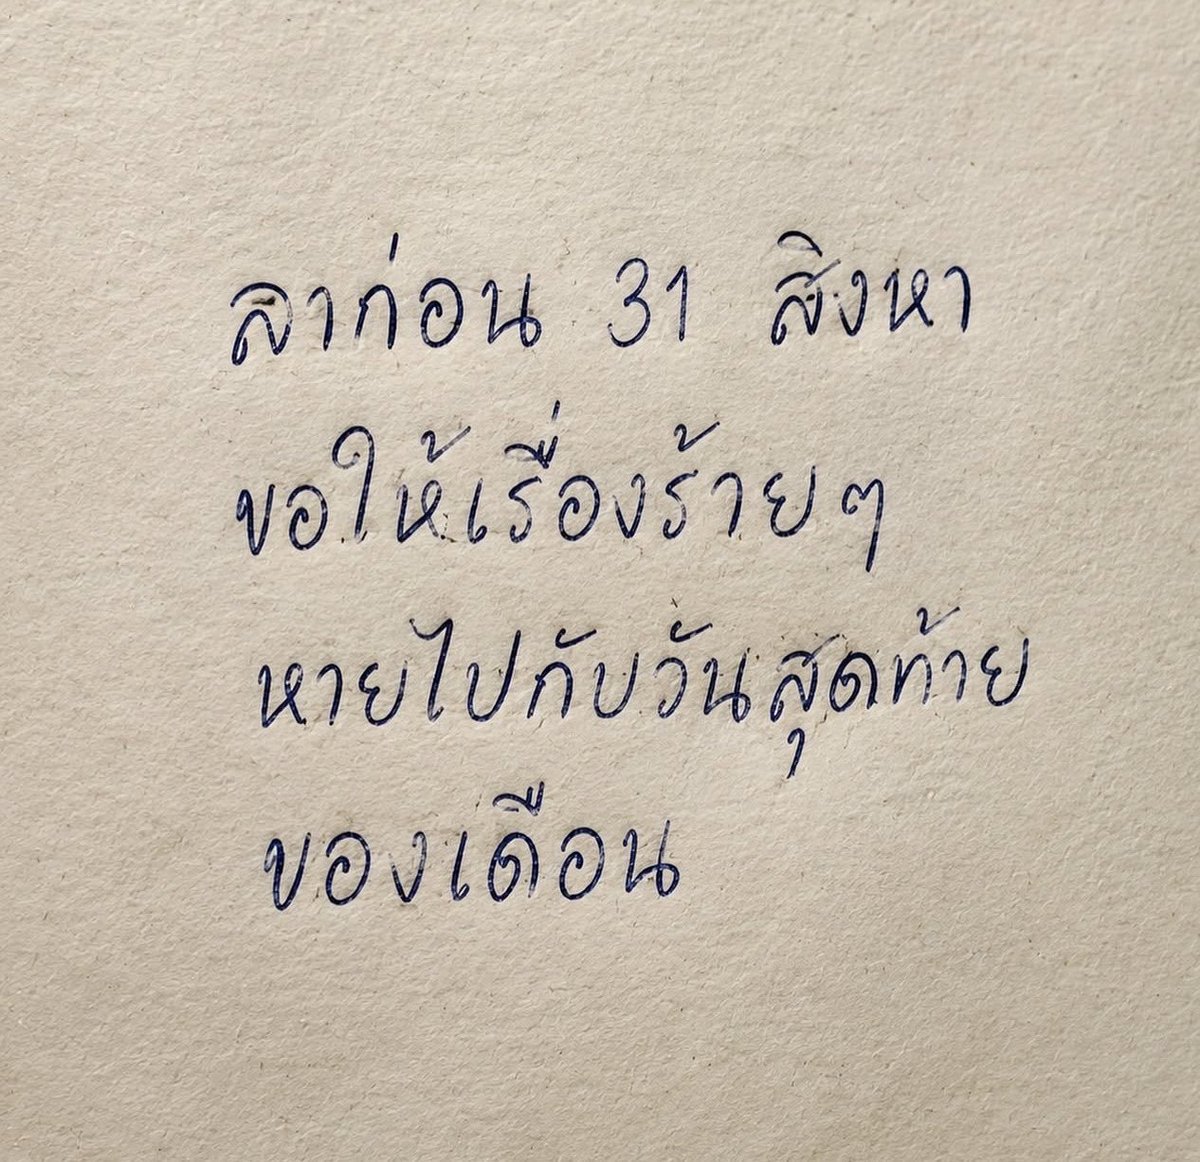 ลาก่อน 31 สิงหา
ขอให้เรื่องร้ายๆ
หายไปกับวันสุดท้าย
ของเดือน